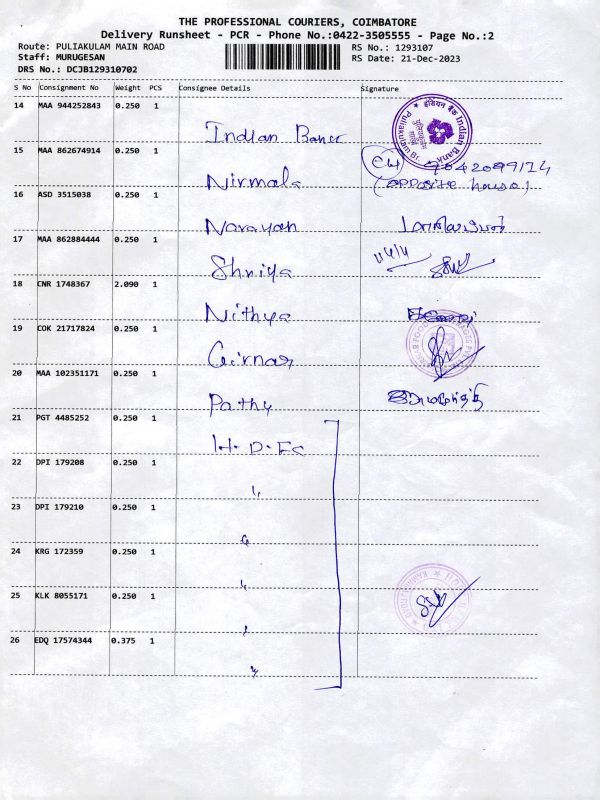 THE PROFESSIONAL COURIERS, COIMBATORE
Delivery Runsheet - PCR - Phone No.:0422-3505555 - Page No.:2
Route: PULIAKULAM MAIN ROAD RS No.: 1293107
Staff: MURUGESAN RS Date: 21-Dec-2023
DRS No.: DCJB129310702
S No Consignment No Weight PCS Consignee Details Signature
14 MAA 944252843 0.250 1 Indian Bank
15 MAA 862674914 0.250 1 Nirmala
(opposite house)
16 ASD 3515038 0.250 1 Narayan
17 MAA 862884444 0.250 1 Shriya
18 CNR 1748367 2.090 1 Nithya
19 COK 21717824 0.250 1 Girnar
20 MAA 102351171 0.250 1 Pathy
21 PGT 4485252 0.250 1 H.D.FC
22 DPI 179208 0.250 1 "
23 DPI 179210 0.250 1 "
24 KRG 172359 0.250 1 "
25 KLK 8055171 0.250 1 "
26 EDQ 17574344 0.375 1 "